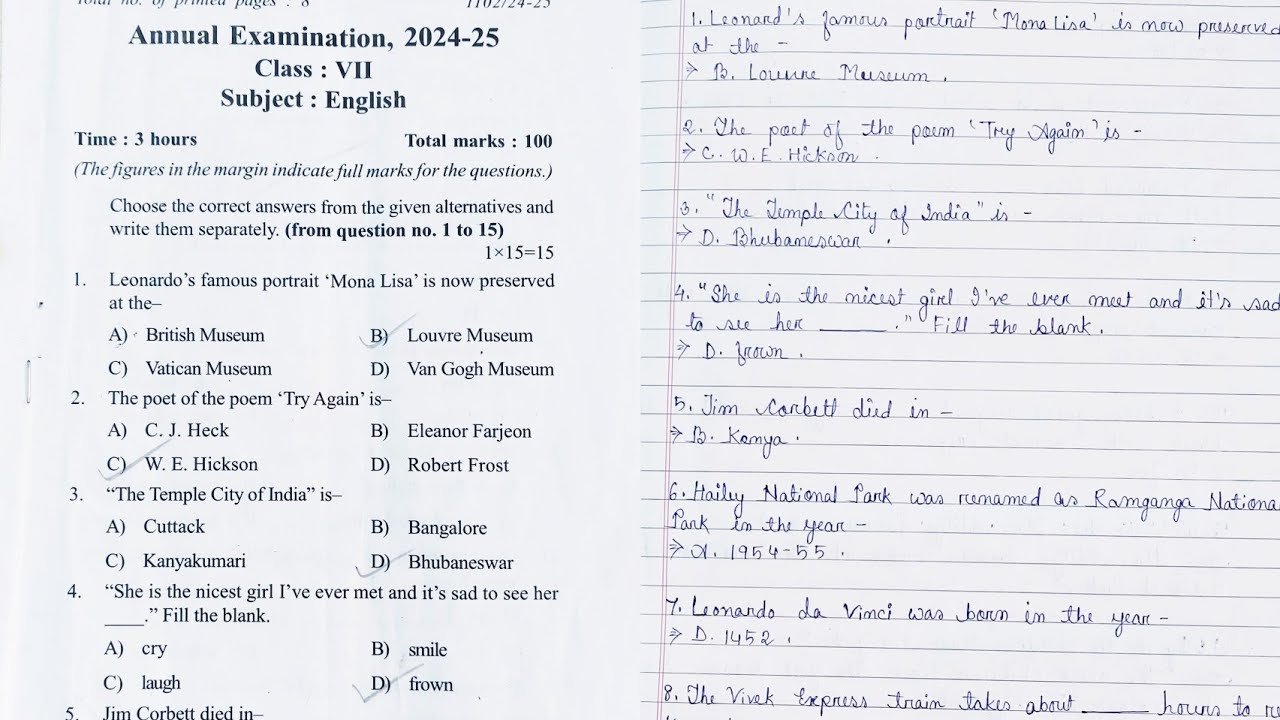 Total no. of printed pages : 8
1102/24-25
Annual Examination, 2024-25
Class : VII
Subject : English
Time : 3 hours Total marks : 100
(The figures in the margin indicate full marks for the questions.)
Choose the correct answers from the given alternatives and
write them separately. (from question no. 1 to 15)
1×15=15
1. Leonardo's famous portrait 'Mona Lisa' is now preserved
at the–
A) British Museum B) Louvre Museum
C) Vatican Museum D) Van Gogh Museum
2. The poet of the poem 'Try Again' is–
A) C. J. Heck B) Eleanor Farjeon
C) W. E. Hickson D) Robert Frost
3. "The Temple City of India" is–
A) Cuttack B) Bangalore
C) Kanyakumari D) Bhubaneswar
4. "She is the nicest girl I've ever met and it's sad to see her
____." Fill the blank.
A) cry B) smile
C) laugh D) frown
5. Jim Corbett died in–
1. Leonard's famous portrait 'Mona Lisa' is now preserved
at the -
→ B. Louvre Museum.
2. The poet of the poem 'Try Again' is -
→ C. W. E. Hickson.
3. "The Temple City of India" is -
→ D. Bhubaneswar.
4. "She is the nicest girl I've ever meet and it's sad
to see her ______." Fill the blank.
→ D. frown.
5. Jim Corbett died in -
→ B. Kenya.
6. Hailey National Park was renamed as Ramganga National
Park in the year -
→ A. 1954-55.
7. Leonardo da Vinci was born in the year -
→ D. 1452.
8. The Vivek Express train takes about ______ hours to